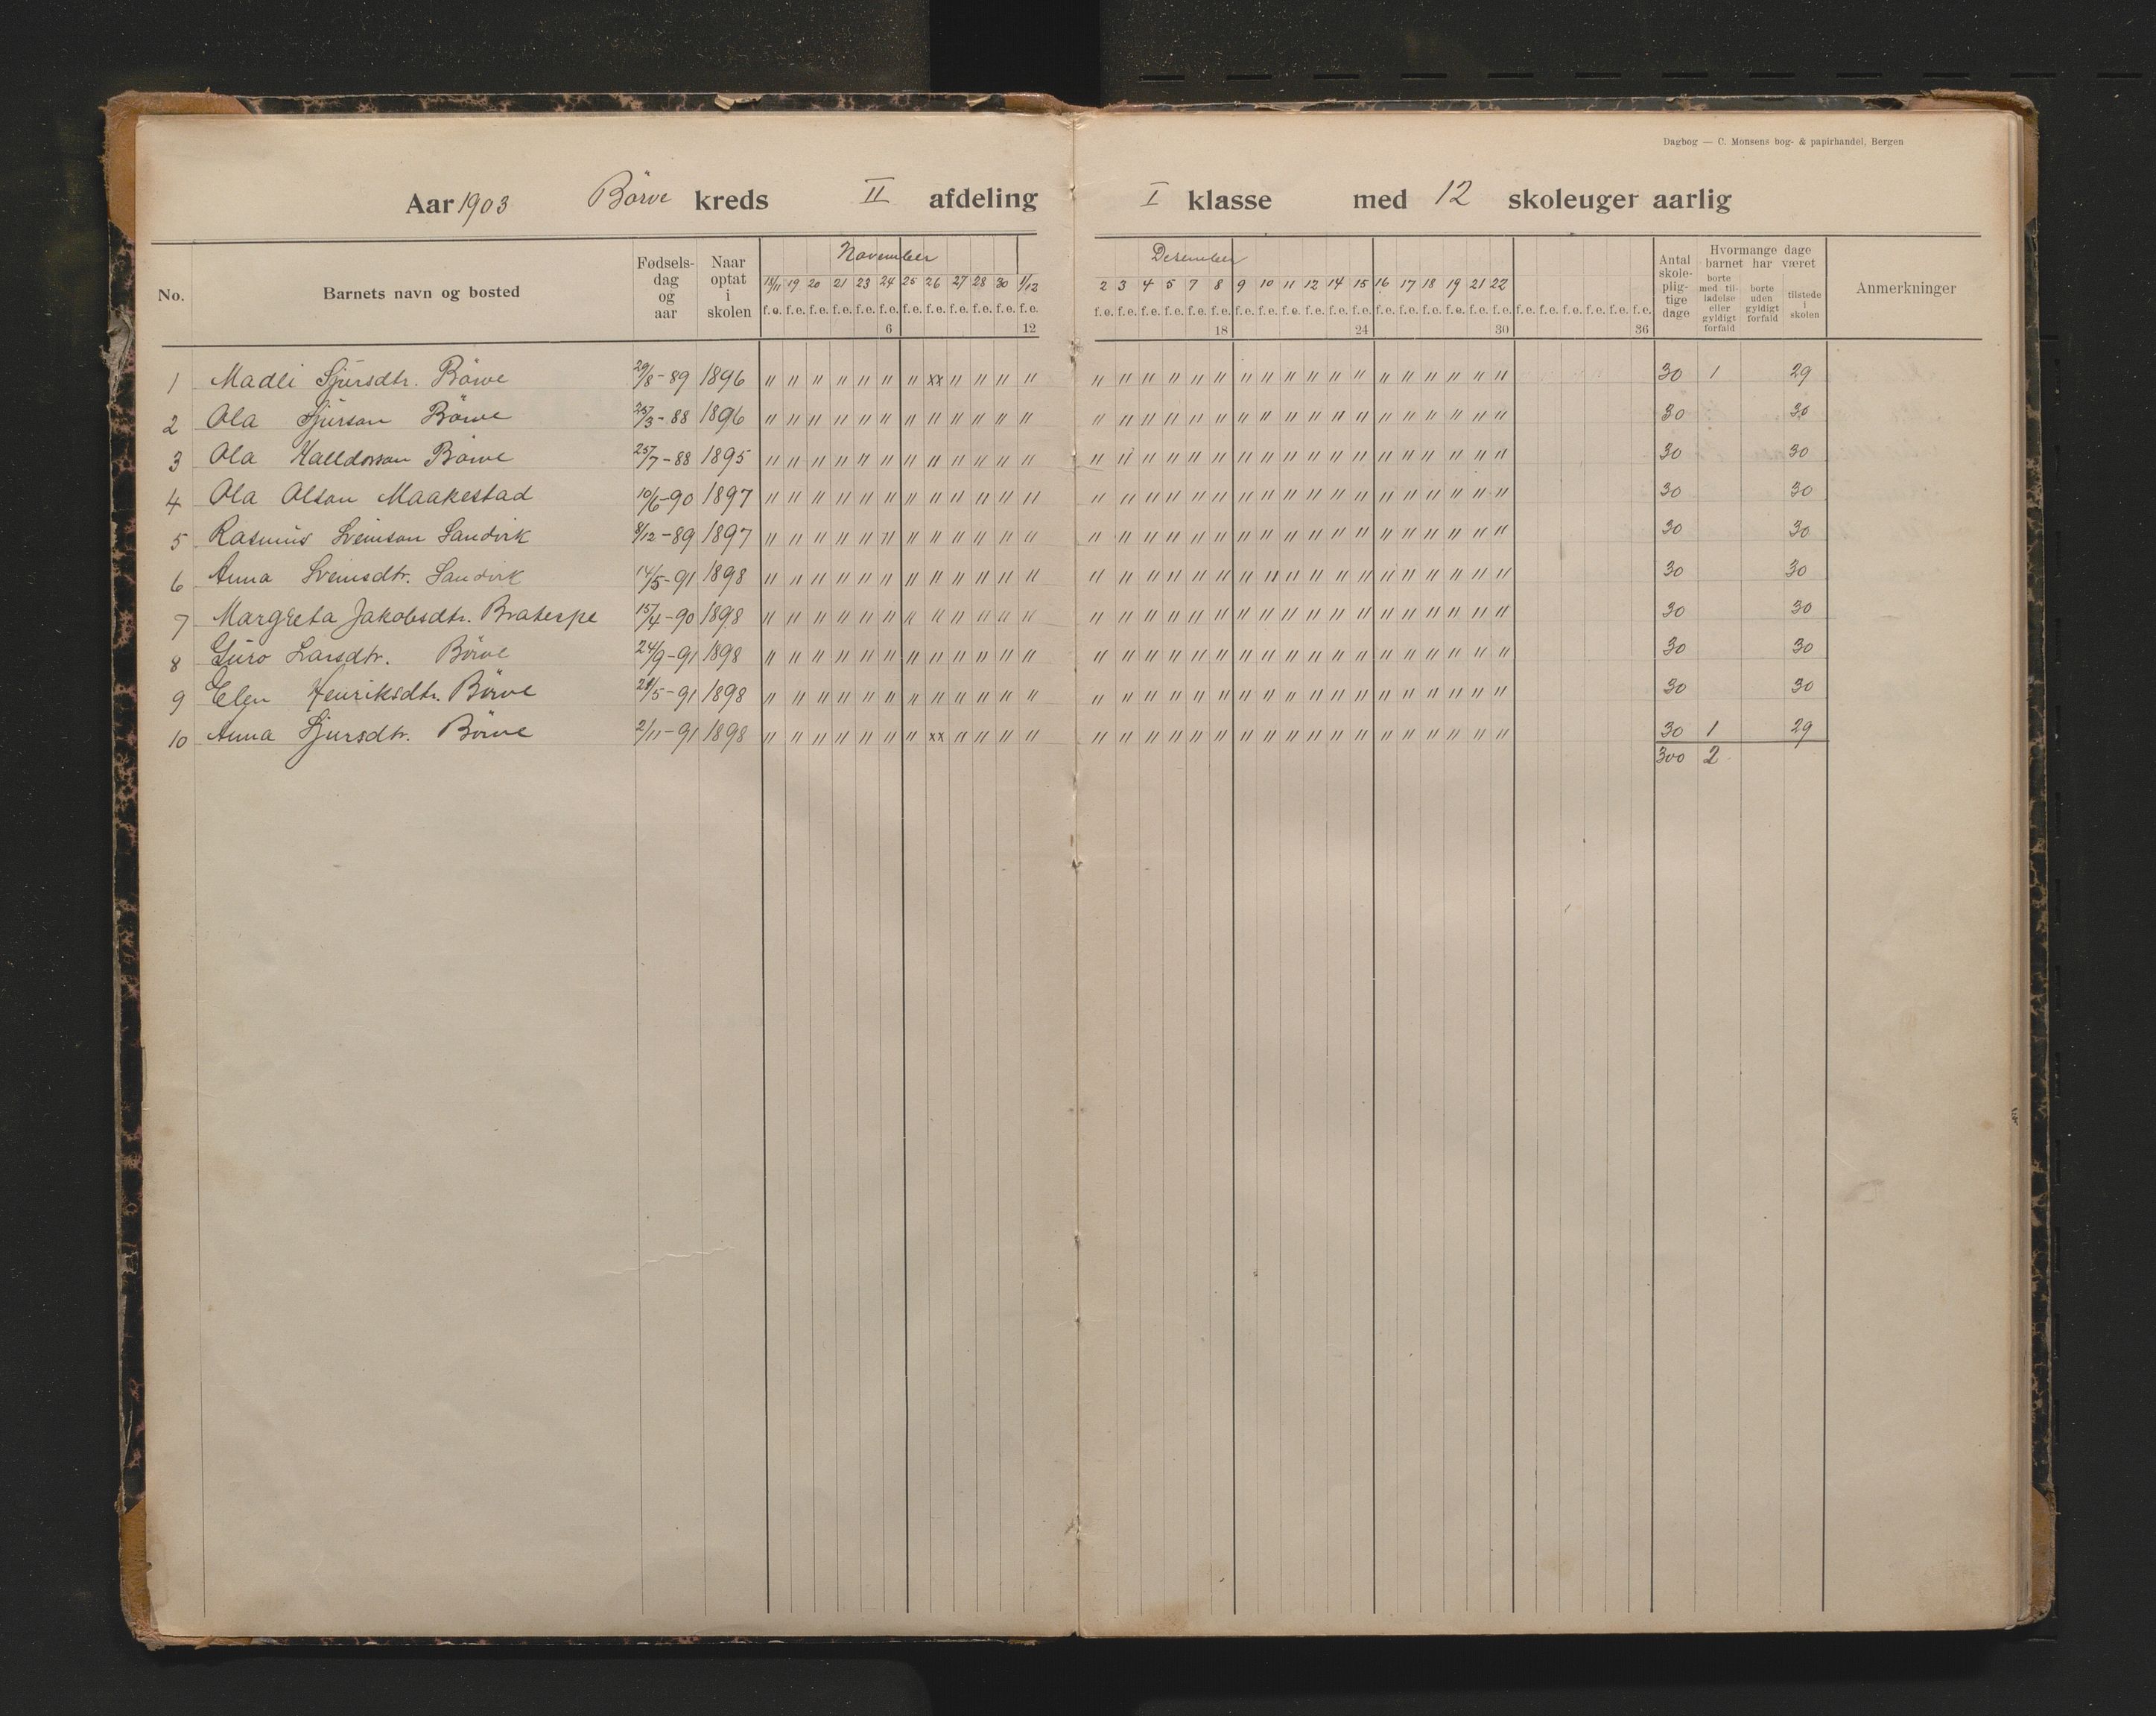 Dagbog — C. Monsens bog- & papirhandel, Bergen
Aar 1903 Börve kreds II afdeling I klasse med 12 skoleuger aarlig
No. Barnets navn og bosted Fødsels-dag og aar Naar optat i skolen November Desember Antal skole-plig-tige dage Hvormange dage barnet har været borte med til-ladelse eller gyldigt forfald borte uden gyldigt forfald tilstede i skolen Anmerkninger
18/11 19 20 21 23 24 25 26 27 28 30 1/12 2 3 4 5 7 8 9 10 11 12 14 15 16 17 18 19 21 22
f.e. f.e. f.e. f.e. f.e. f.e. f.e. f.e. f.e. f.e. f.e. f.e. f.e. f.e. f.e. f.e. f.e. f.e. f.e. f.e. f.e. f.e. f.e. f.e. f.e. f.e. f.e. f.e. f.e. f.e. f.e. f.e. f.e. f.e. f.e. f.e.
6 12 18 24 30 36
1 Madli Sjursdtr. Börve 29/8-89 1896 " " " " " " " xx " " " " " " " " " " " " " " " " " " " " " " 30 1 29
2 Ola Sjurson Börve 25/3-88 1896 " " " " " " " " " " " " " " " " " " " " " " " " " " " " " " 30 30
3 Ola Halldorson Börve 25/7-88 1895 " " " " " " " " " " " " " " " " " " " " " " " " " " " " " " 30 30
4 Ola Olson Maakestad 10/6-90 1897 " " " " " " " " " " " " " " " " " " " " " " " " " " " " " " 30 30
5 Rasmus Sveinson Sandvik 8/12-89 1897 " " " " " " " " " " " " " " " " " " " " " " " " " " " " " " 30 30
6 Anna Sveinsdtr. Sandvik 14/5-91 1898 " " " " " " " " " " " " " " " " " " " " " " " " " " " " " " 30 30
7 Margreta Jakobsdtr. Bratespe 15/4-90 1898 " " " " " " " " " " " " " " " " " " " " " " " " " " " " " " 30 30
8 Guro Larsdtr. Börve 24/9-91 1898 " " " " " " " " " " " " " " " " " " " " " " " " " " " " " " 30 30
9 Elen Henriksdtr. Börve 29/5-91 1898 " " " " " " " " " " " " " " " " " " " " " " " " " " " " " " 30 30
10 Anna Sjursdtr. Börve 2/11-91 1898 " " " " " " " xx " " " " " " " " " " " " " " " " " " " " " " 30 1 29
300 2